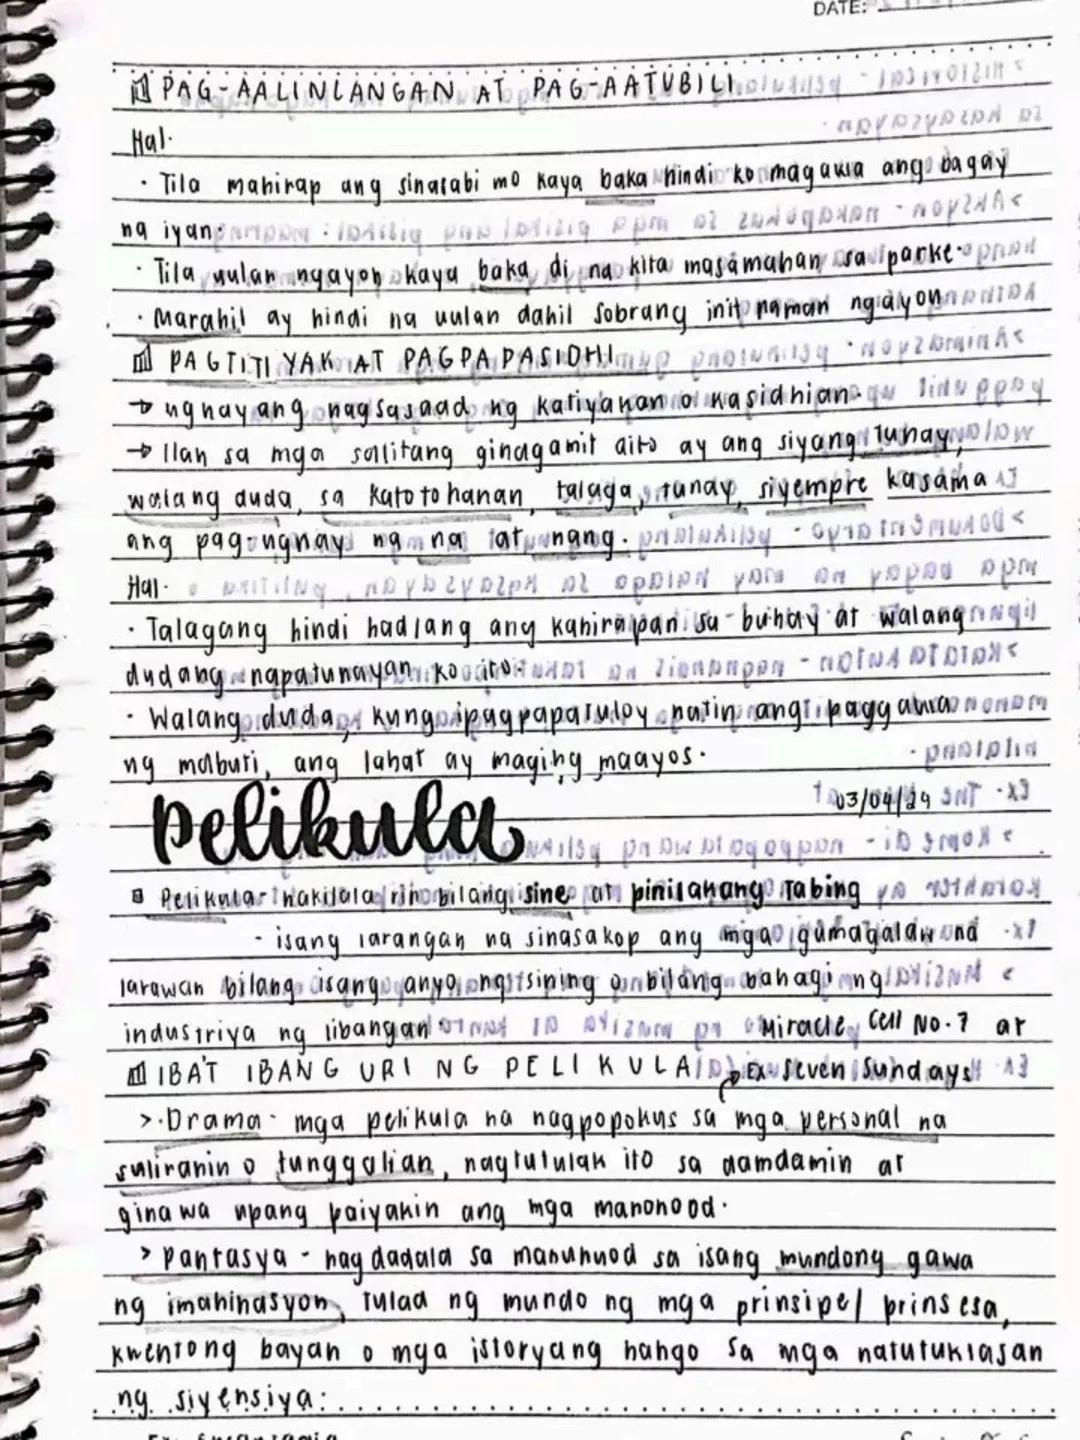 DATE:
PAG-AALINLANGAN AT PAG-AATUBILI
Hal.
· Tila mahirap ang sinasabi mo kaya baka hindi ko magawa ang bagay
na iyan.
· Tila uulan ngayon kaya baka di na kita masamahan sa parke.
· Marahil ay hindi na uulan dahil sobrang init naman ngayon
PAGTITIYAK AT PAGPAPASIDHI
→ ugnayang nagsasaad ng katiyakan o kasidhian.
→ Ilan sa mga salitang ginagamit dito ay ang siyang tunay,
walang duda, sa katotohanan, talaga, tunay, siyempre kasama
ang pag-ugnay na na at unang.
Hal.
· Talagang hindi hadlang ang kahirapan sa buhay at walang
dudang napatunayan ko ito.
· Walang duda, kung ipagpapatuloy natin ang paggawa
ng mabuti, ang lahat ay maging maayos.
pelikula 03/04/24
Pelikula - nakilala rin bilang sine at pinilakang Tabing
- isang larangan na sinasakop ang mga gumagalaw na
larawan bilang isang anyo ng sining o bilang bahagi ng
industriya ng libangan Miracle Cell No. 7 at
IBA'T IBANG URI NG PELIKULA Ex. Seven Sundays
> Drama - mga pelikula na nagpopokus sa mga personal na
suliranin o tunggalian, nagtutulak ito sa damdamin at
ginawa upang paiyakin ang mga manonood.
> Pantasya - nagdadala sa manunuod sa isang mundong gawa
ng imahinasyon, tulad ng mundo ng mga prinsipe/ prinsesa,
kwentong bayan o mga istoryang hango sa mga natutuklasan
ng siyensiya.